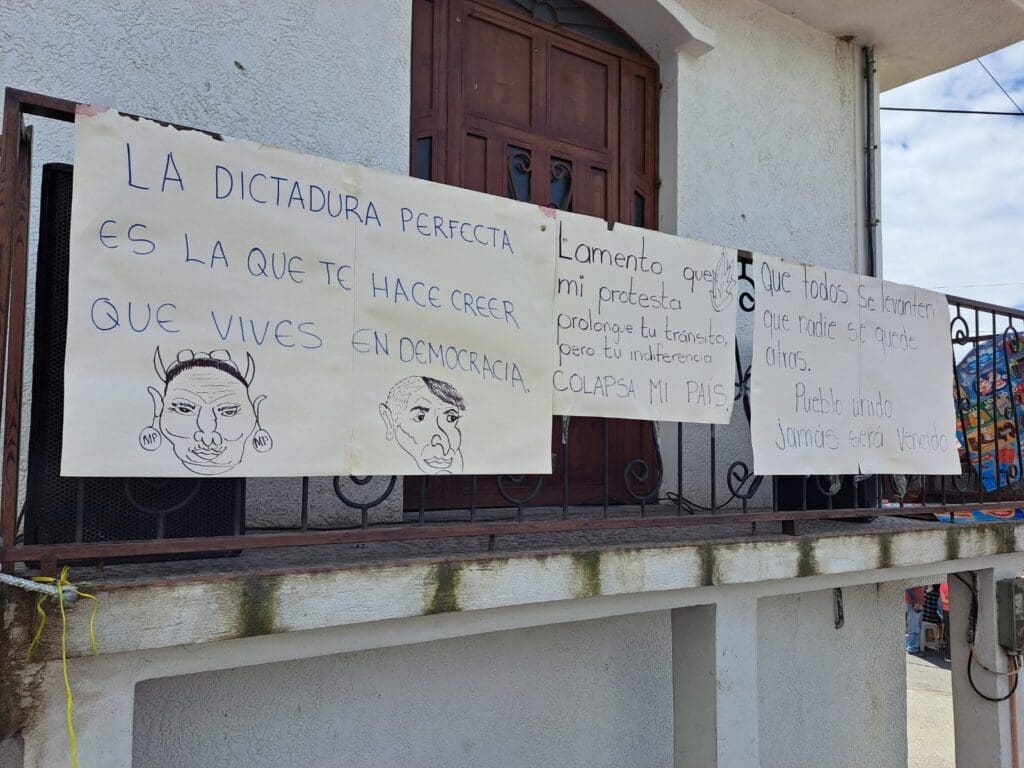 LA DICTADURA PERFECTA
ES LA QUE TE HACE CREER
QUE VIVES EN DEMOCRACIA.
MP MP
Lamento que
mi protesta
prolongue tu tránsito,
pero tu indiferencia
COLAPSA MI PAÍS.
Que todos se levanten
que nadie se quede
atras.
Pueblo unido
jamás será vencido